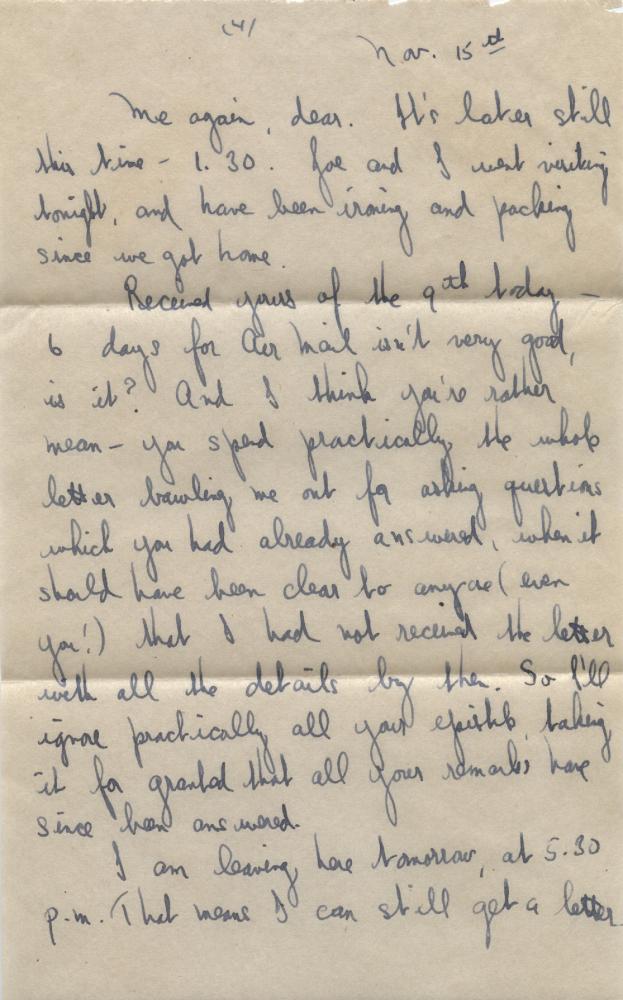 (4)
Nov. 15th
Me again, dear. It's later still
this time - 1.30. Joe and I went visiting
tonight, and have been ironing and packing
since we got home.
Received yours of the 9th today -
6 days for Air Mail isn't very good,
is it? And I think you're rather
mean - you spend practically the whole
letter bawling me out for asking questions
which you had already answered, when it
should have been clear to anyone (even
you!) that I had not received the letter
with all the details by then. So I'll
ignore practically all your epistle, taking
it for granted that all your remarks have
since been answered.
I am leaving here tomorrow, at 5.30
p.m. That means I can still get a letter